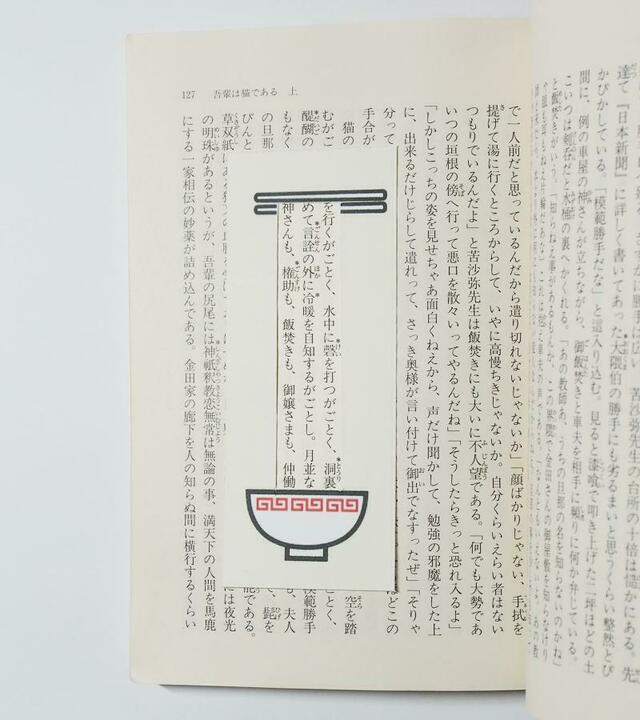 苦沙弥先生の台所の十倍は慥かにある。先
達て『日本新聞』に詳しく書いてあった大隈伯の勝手にも劣るまいと思うくらい整然とぴ
かぴかしている。「模範勝手だな」と這入り込む。見ると漆喰で叩き上げた二坪ほどの土
間に、例の車屋の神さんが立ちながら、御飯焚きと車夫を相手に頻りに何か弁じている。
こいつは剣呑だと水桶の裏へかくれる。「あの教師あ、うちの旦那の名を知らないのかね」
と飯焚きがいう。「知らねえ事があるもんか、この界隈で金田さんの御屋敷を知らなけり
ゃ眼も耳もねえ片輪だあな」これは抱え車夫の声である。「なんともいえないよ。あの教
127 吾輩は猫である 上
で一人前だと思っているんだから遣り切れないじゃないか」「顔ばかりじゃない、手拭を
提げて湯に行くところからして、いやに高慢ちきじゃないか。自分くらいえらい者はない
つもりでいるんだよ」と苦沙弥先生は飯焚きにも大いに不人望である。「何でも大勢であ
いつの垣根の傍へ行って悪口を散々いってやるんだね」「そうしたらきっと恐れ入るよ」
「しかしこっちの姿を見せちゃあ面白くねえから、声だけ聞かして、勉強の邪魔をした上
に、出来るだけじらして遣れって、さっき奥様が言い付けて御出でなすったぜ」「そりゃ
分って
ほどこの
手合が
猫の
空を踏
むがご
を行くがごとく、水中に磬を打つがごとく、洞裏
ごとく、
醍醐の
めて言詮の外に冷暖を自知するがごとし。月並な
模範勝手
もなく
神さんも、権助も、飯焚きも、御嬢さまも、仲働
も、夫人
の旦那
て、髭を
ぴんと
能である。
草双紙に
には夜光
の明珠があるというが、吾輩の尻尾には神祇釈教恋無常は無論の事、満天下の人間を馬鹿
にする一家相伝の妙薬が詰め込んである。金田家の廊下を人の知らぬ間に横行するくらい